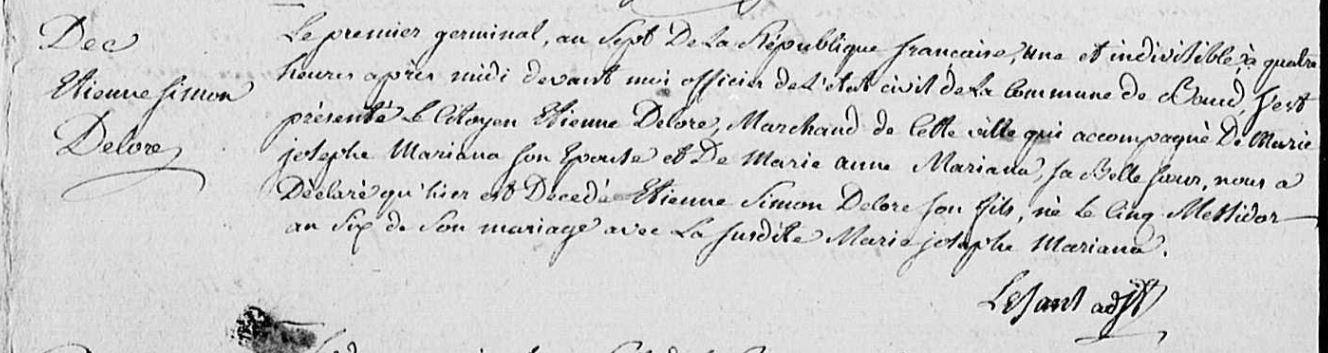 Dec
Etienne Simon
Delore
Le premier germinal, an Sept De La République francaise, une et indivisible, à quatre
heures après midi devant moi officier de L'état civil de La Commune de Baud, s'est
présenté le Citoyen Etienne Delore, Marchand de Cette ville qui accompagné De Marie
josephe Mariana son Epouse et De Marie anne Mariana, sa Belle sœur, nous a
Déclaré qu'hier est Décedé Etienne Simon Delore son fils, né le Cinq Messidor
an Six de Son mariage avec La susdite Marie josephe Mariana.
LeSant adjt